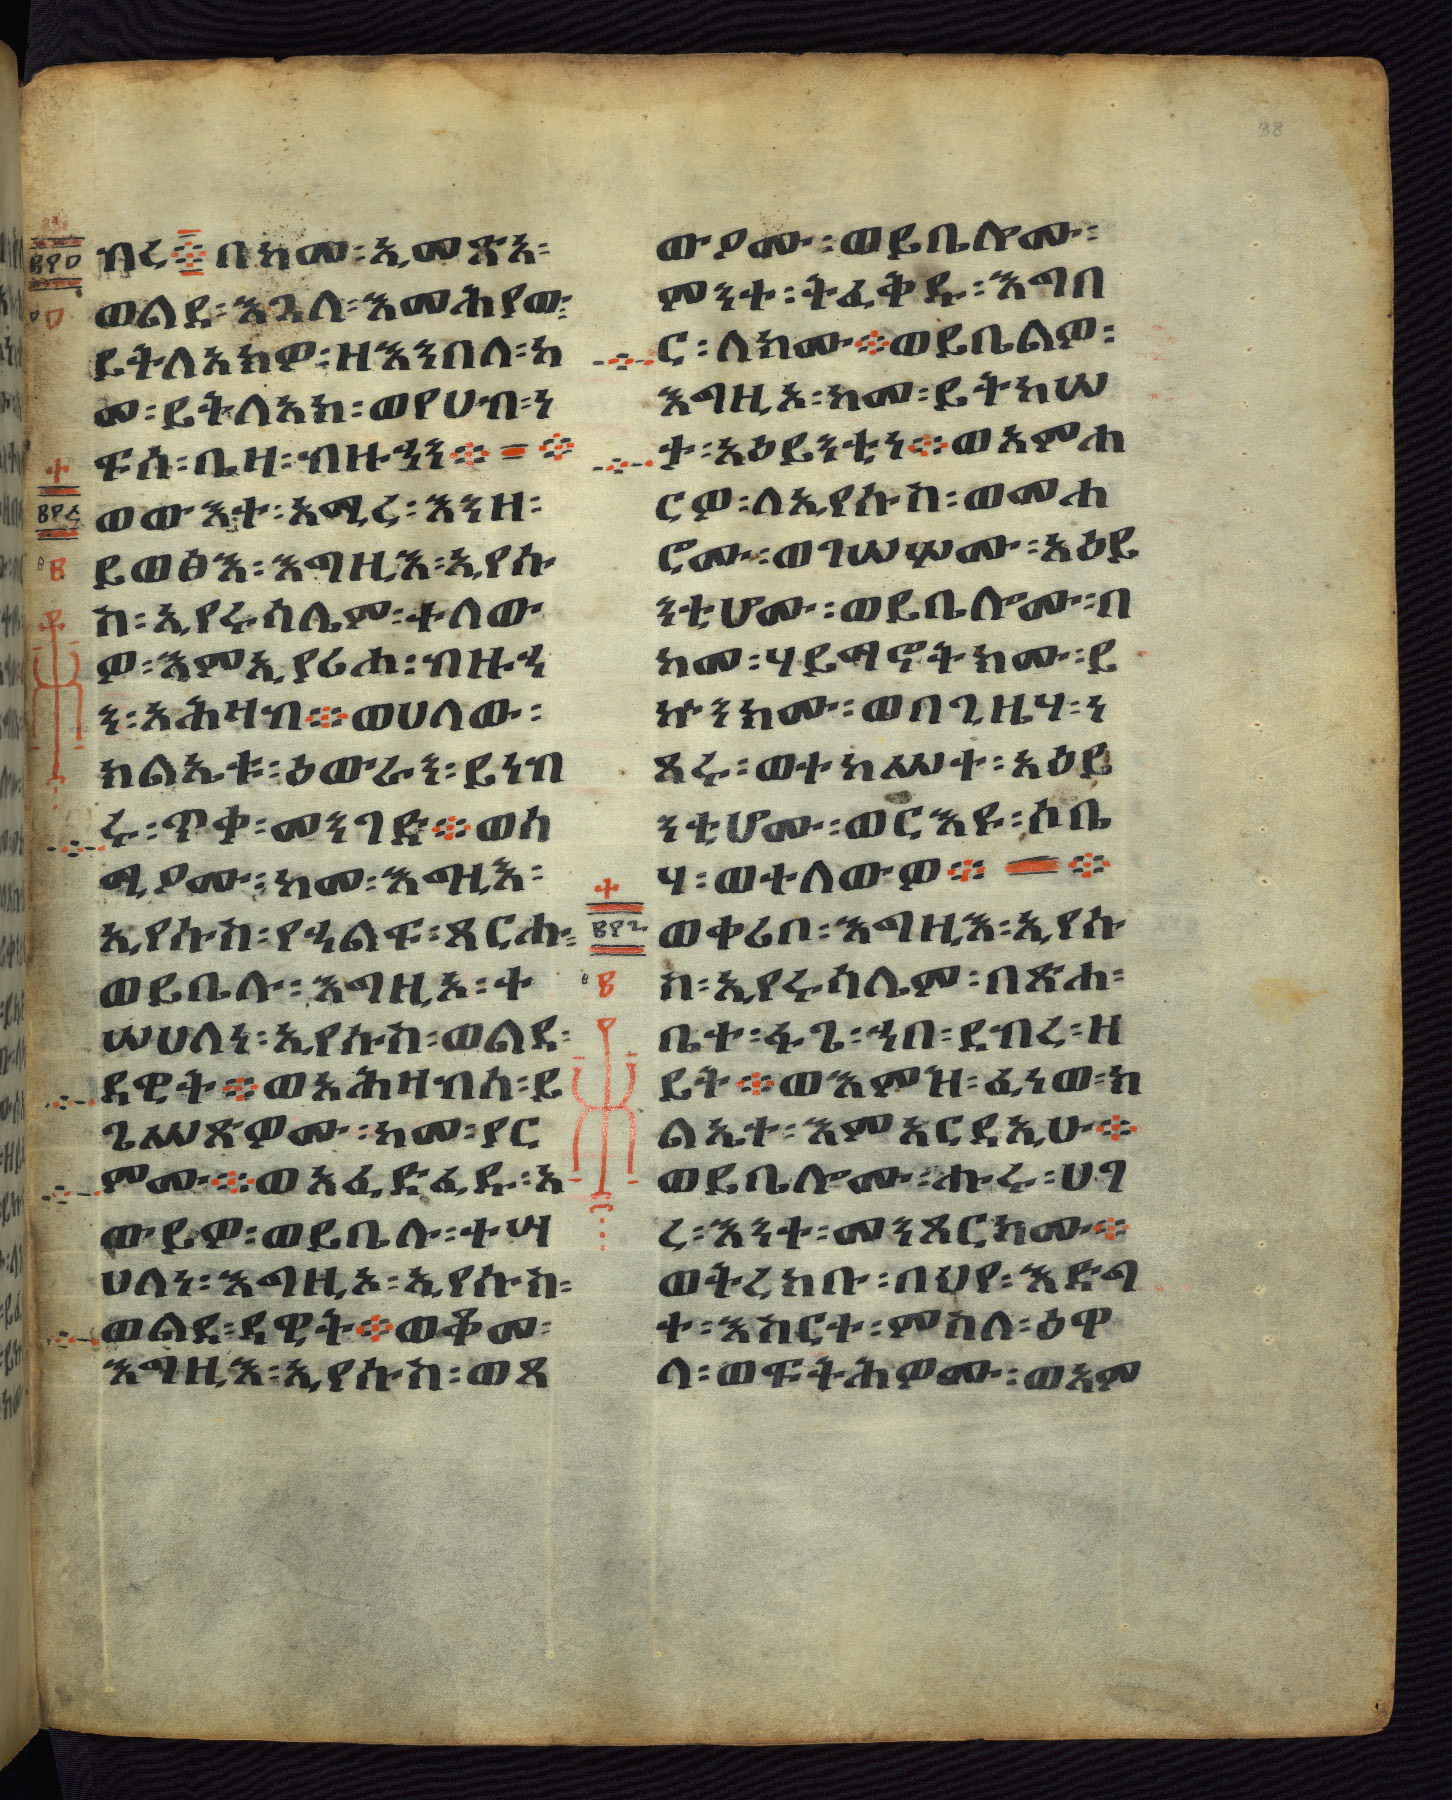 38
ብረ ፨ በከመ ፡ ኢመጽአ ፡
ወልደ ፡ እጓለ ፡ እመሕያው ፡
ይትለአክዎ ፡ ዘእንበለ ፡ ከ
መ ፡ ይትለአክ ፡ ወየሀብ ፡ ነ
ፍሰ ፡ ቤዛ ፡ ብዙኃን ፨ = ፨
ወውእተ ፡ አሚረ ፡ እንዘ ፡
ይወፅእ ፡ እግዚእ ፡ ኢየሱ
ስ ፡ ኢየሩሳሌም ፡ ተለው
ዎ ፡ እምኢያሪሐ ፡ ብዙኃ
ን ፡ አሕዛብ ፨ ወሀለው ፡
ክልኤቱ ፡ ዕውራን ፡ ይነብ
ሩ ፡ ጥቀ ፡ መንገድ ፨ ወሰ
ሚዖሙ ፡ ከመ ፡ እግዚእ ፡
ኢየሱስ ፡ የኃልፍ ፡ ጸርሐ ፡
ወይቤሉ ፡ እግዚእ ፡ ተ
ሠሀለነ ፡ ኢየሱስ ፡ ወልደ ፡
ዳዊት ፨ ወአሕዛብሰ ፡ ይ
ጌሥጽዎሙ ፡ ከመ ፡ ያር
ምሙ ፨ ወአፈድፈዱ ፡ አ
ውይዎ ፡ ወይቤሉ ፡ ተሣ
ሀለነ ፡ እግዚአ ፡ ኢየሱስ ፡
ወልደ ፡ ዳዊት ፨ ወቆመ ፡
እግዚእ ፡ ኢየሱስ ፡ ወጸ
ውዖሙ ፡ ወይቤሎሙ ፡
ምንተ ፡ ትፈቅዱ ፡ እግበ
ር ፡ ለክሙ ፨ ወይቤልዎ ፡
እግዚአ ፡ ከመ ፡ ይትከሠ
ታ ፡ አዕይንቲነ ፨ ወአምሐ
ርዎ ፡ ለኢየሱስ ፡ ወመሐ
ሮሙ ፡ ወገሠሦሙ ፡ አዕይ
ንቲሆሙ ፡ ወይቤሎሙ ፡ በ
ከመ ፡ ሃይማኖትክሙ ፡ ይ
ኩንክሙ ፡ ወበጊዜሃ ፡ ነ
ጸሩ ፡ ወተከሥተ ፡ አዕይ
ንቲሆሙ ፡ ወርእዩ ፡ ሶቤ
ሃ ፡ ወተለውዎ ፨ = ፨
ወቀሪቦ ፡ እግዚእ ፡ ኢየሱ
ስ ፡ ኢየሩሳሌም ፡ በጽሐ ፡
ቤተ ፡ ፋጌ ፡ ኃበ ፡ ደብረ ፡ ዘ
ይት ፨ ወእምዝ ፡ ፈነወ ፡ ክ
ልኤተ ፡ እምአርዳኢሁ ፨
ወይቤሎሙ ፡ ሑሩ ፡ ሀገ
ረ ፡ እንተ ፡ መንጸርክሙ ፨
ወትረክቡ ፡ በህየ ፡ እድግ
ተ ፡ እስርተ ፡ ምስለ ፡ ዕዋ
ላ ፡ ወፍትሕዎሙ ፡ ወአም